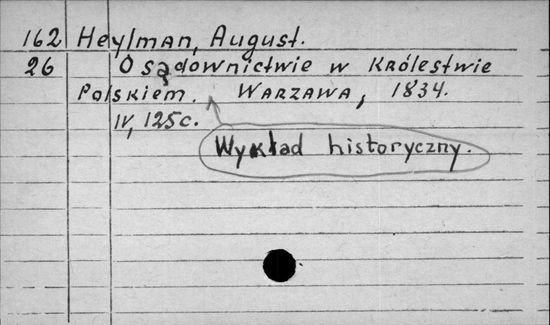 162 Heylman, August.
26 O sądownictwie w Królestwie
Polskiem. Warzawa, 1834.
IV, 125c.
Wykład historyczny.